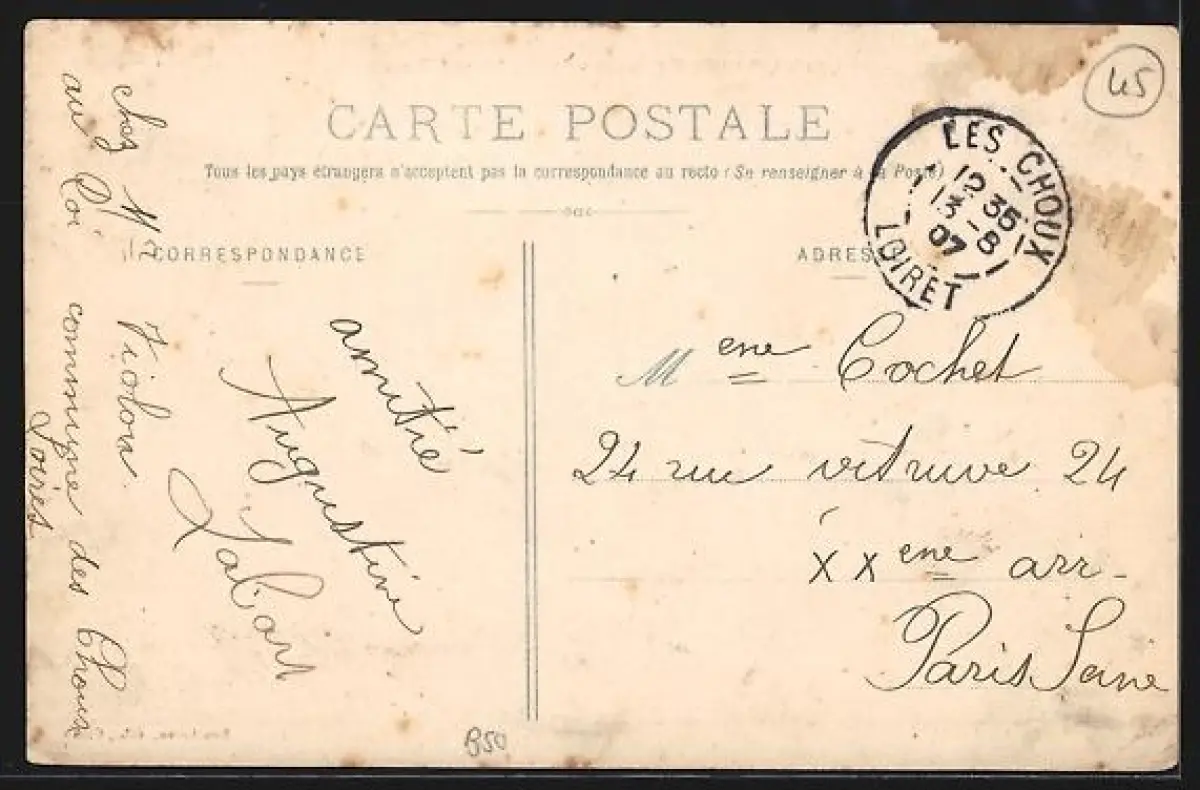 45
CARTE POSTALE
Tous les pays étrangers n'acceptent pas la correspondance au recto (Se renseigner à la Poste)
LES CHOUX
12 35
13 -8
07
LOIRET
CORRESPONDANCE
ADRES
amitié
Augustine
Labart
chez Mr Violon
au Roi commune des Choux
Loiret
Meme Cochet
24 rue vitruve 24
XXeme arr-
Paris Seine
B50